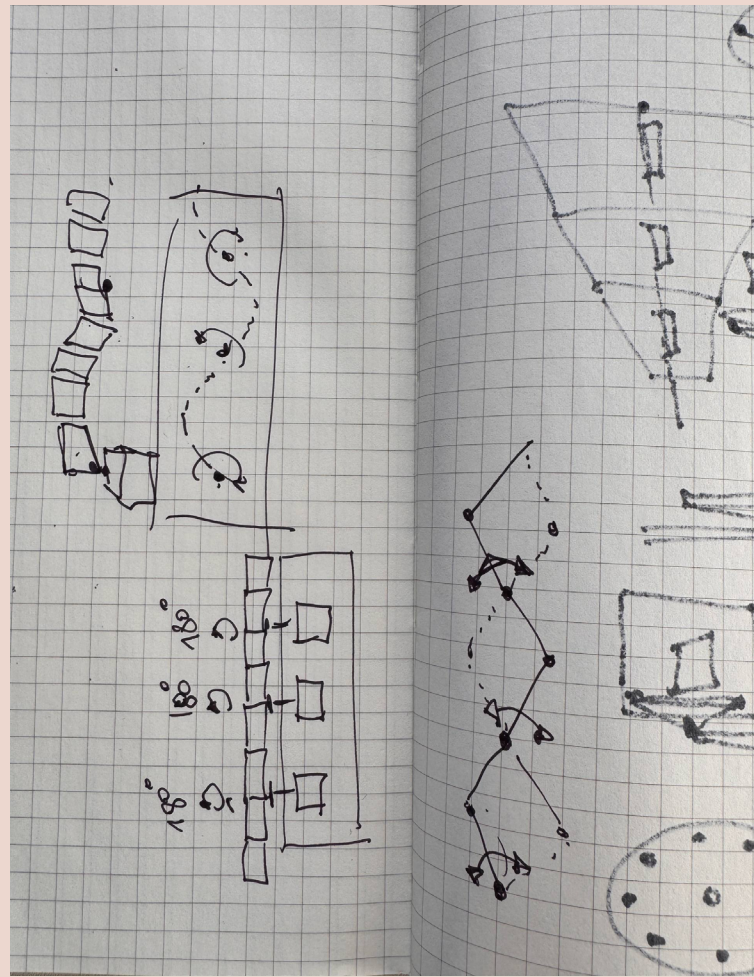 180°
180°
180°